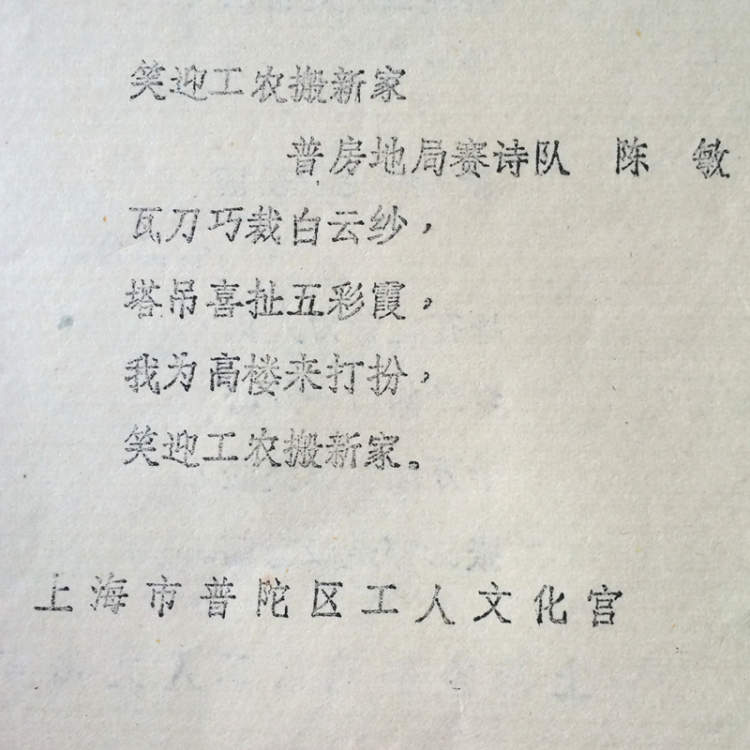 笑迎工农搬新家
普房地局赛诗队 陈 敏
瓦刀巧裁白云纱，
塔吊喜扯五彩霞，
我为高楼来打扮，
笑迎工农搬新家。
上海市普陀区工人文化宫